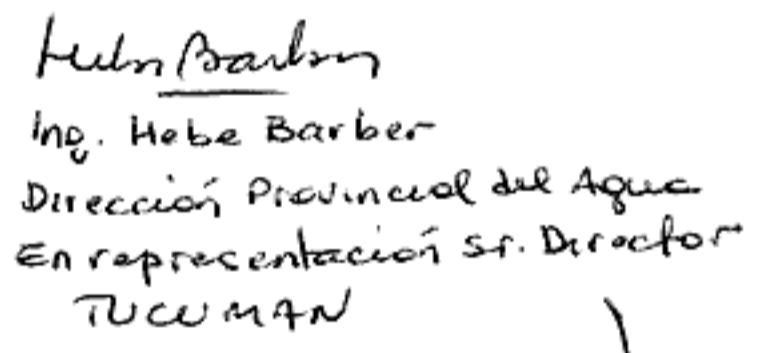 Hebe Barber
Ing. Hebe Barber
Dirección Provincial del Agua
En representación Sr. Director
TUCUMAN